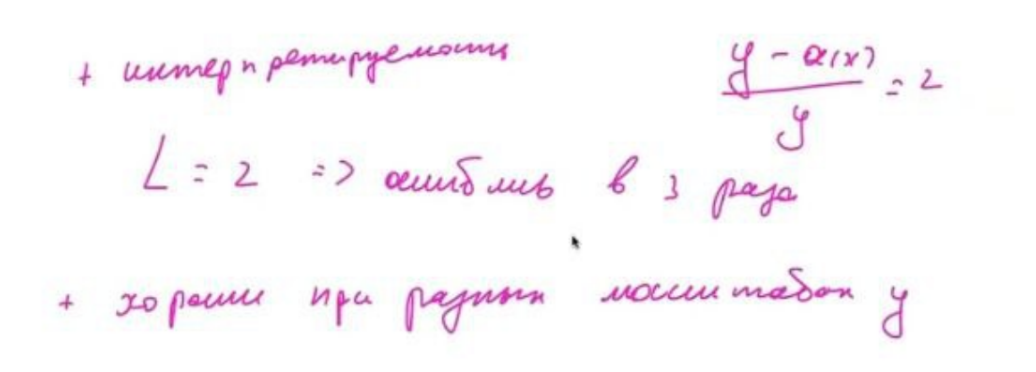 + интерпретируемость
y - a(x) / y = 2
L = 2 => ошиблись в 3 раза
+ хороши при разных масштабах y